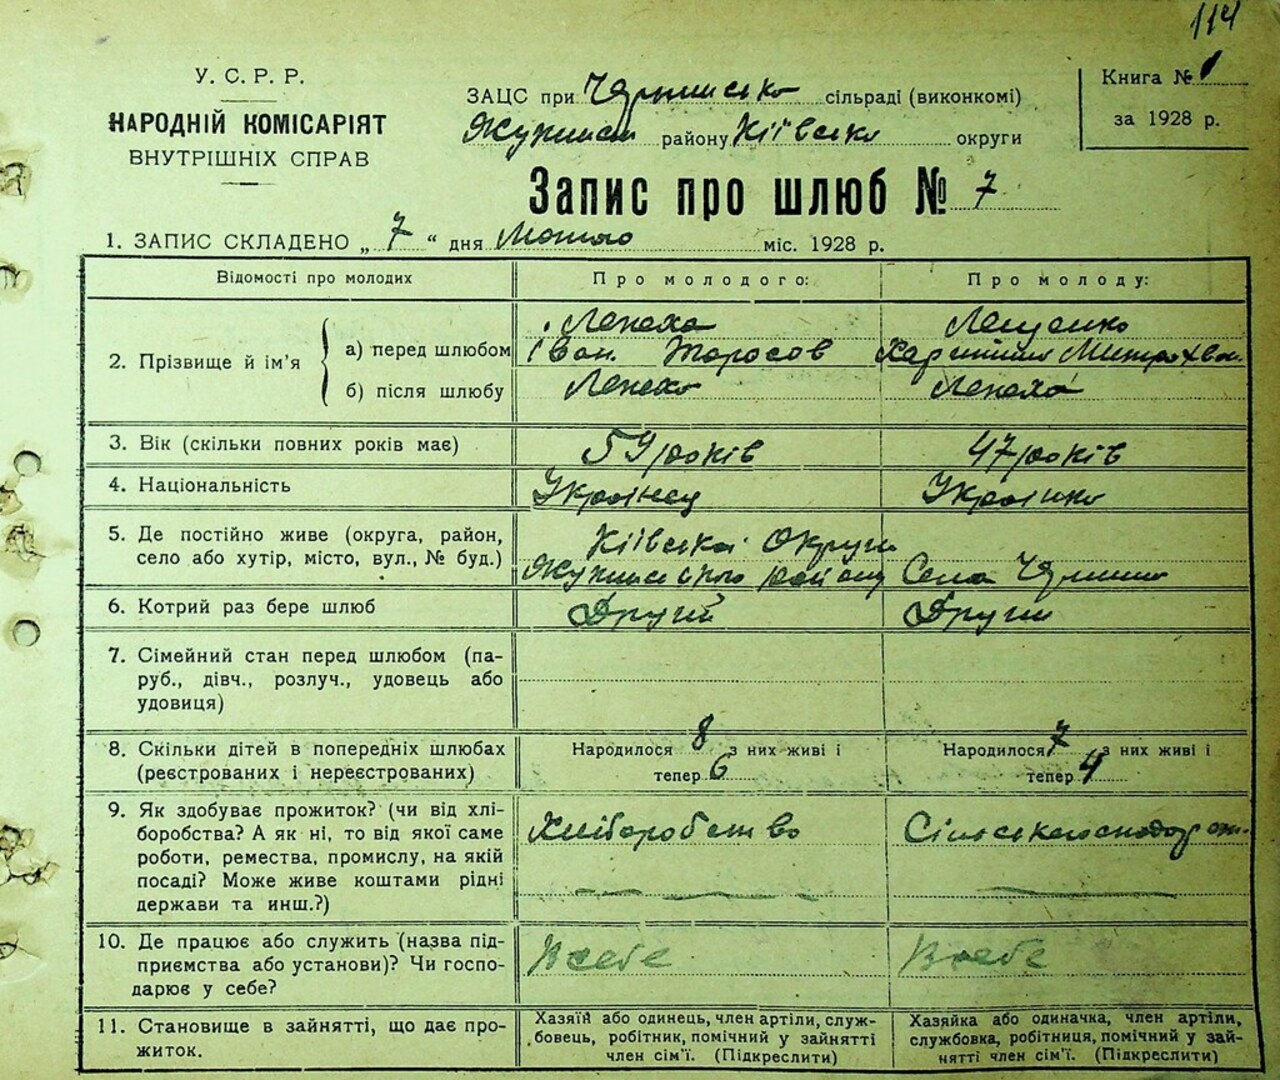 114
У. С. Р. Р.
НАРОДНІЙ КОМІСАРІЯТ
ВНУТРІШНІХ СПРАВ
ЗАЦС при сільраді (виконкомі)
району Київсько округи
Книга №1
за 1928 р.
Запис про шлюб № 7
1. ЗАПИС СКЛАДЕНО „ 7 “ дня міс. 1928 р.
Відомості про молодих
Про молодого:
Про молоду:
2. Прізвище й ім'я
а) перед шлюбом
Лепеха
Іван Тарасов
Лещенко
б) після шлюбу
Лепеха
Лепеха
3. Вік (скільки повних років має)
59 років
47 років
4. Національність
Українец
Українка
5. Де постійно живе (округа, район,
село або хутір, місто, вул., № буд.)
Київської Округи
району
Село
6. Котрий раз бере шлюб
Другий
Други
7. Сімейний стан перед шлюбом (па-
руб., дівч., розлуч., удовець або
удовиця)
8. Скільки дітей в попередніх шлюбах
(реєстрованих і нереєстрованих)
Народилося 8 з них живі і
тепер 6
Народилося 7 з них живі і
тепер 4
9. Як здобуває прожиток? (чи від хлі-
боробства? А як ні, то від якої саме
роботи, ремества, промислу, на якій
посаді? Може живе коштами рідні
держави та инш.?)
Хліборобство
10. Де працює або служить (назва під-
приємства або установи)? Чи госпо-
дарює у себе?
В себе
В себе
11. Становище в зайнятті, що дає про-
житок.
Хазяїй або одинець, член артіли, служ-
бовець, робітник, помічний у зайнятті
член сім'ї. (Підкреслити)
Хазяйка або одиначка, член артіли,
службовка, робітниця, помічний у зай-
нятті член сім'ї. (Підкреслити)